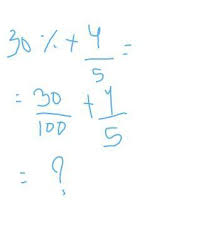 30 % + 4/5 =
= 30/100 + 4/5
= ?